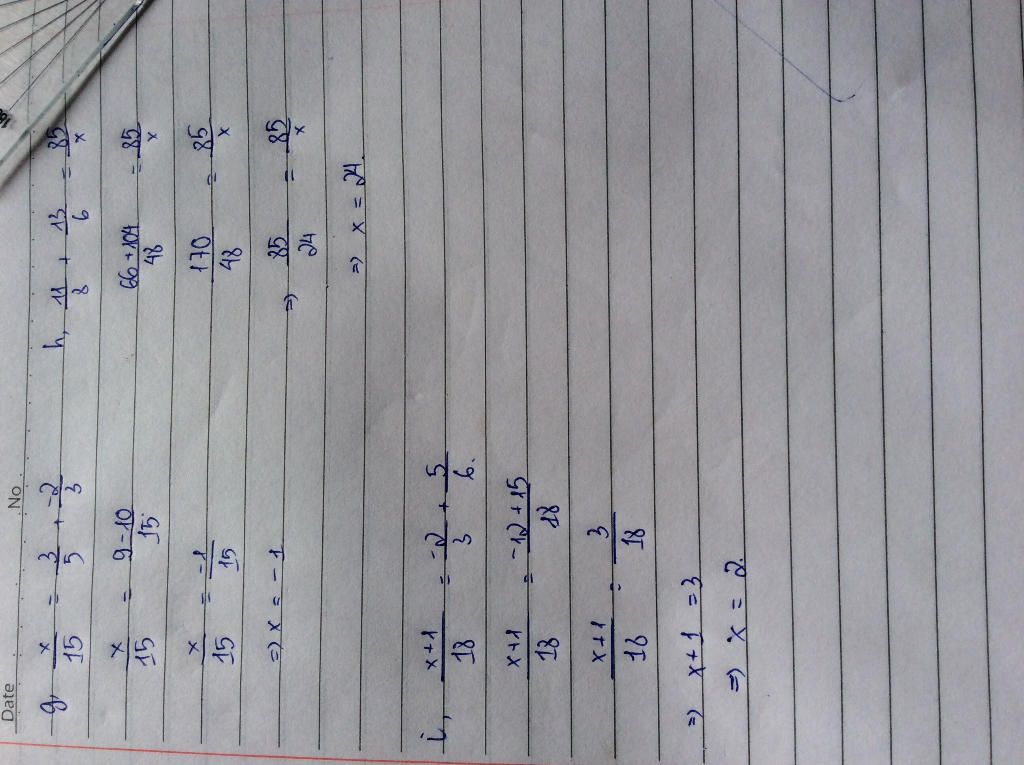 Date No.
g, x/15 = 3/5 + -2/3
x/15 = 9-10/15
x/15 = -1/15
=> x = -1
h, 11/8 + 13/6 = 85/x
66+104/48 = 85/x
170/48 = 85/x
=> 85/24 = 85/x
=> x = 24
i, x+1/18 = -2/3 + 5/6.
x+1/18 = -12+15/18
x+1/18 = 3/18
=> x+1 = 3
=> x = 2